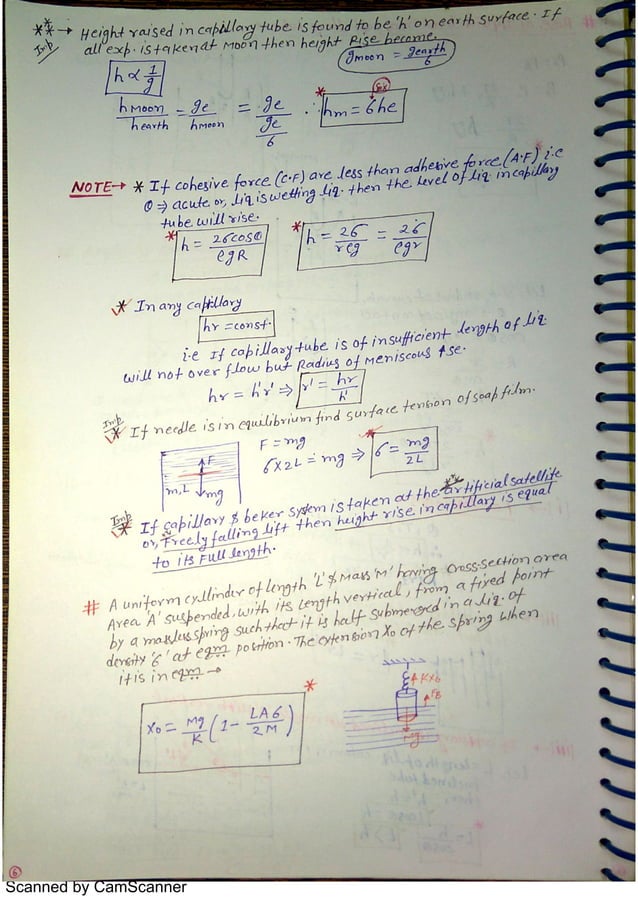 ** → Height raised in capillary tube is found to be 'h' on earth surface. If
Imp all exp. is taken at Moon then height Rise become.
g moon = g earth / 6
h ∝ 1/g
h Moon / h earth = ge / h moon = ge / (ge/6) ∴ * hm = 6he
6x
NOTE → * If cohesive force (C.F) are less than adhesive force (A.F) i.e
θ ⇒ acute or, liq is wetting liq. then the level of liq in capillary
tube will rise.
* h = 2σcosθ / ρgR * h = 2σ / rρg = 2σ / ρgr
* In any capillary
hr = const.
i.e If capillary tube is of insufficient length of liq.
will not over flow but Radius of meniscous ↑se.
hr = h'r' ⇒ r' = hr / h'
Imp * If needle is in equilibrium find surface tension of soap film.
F = mg
σ × 2L = mg ⇒ * σ = mg / 2L
F
m, L mg
Imp * If capillary & beker system is taken at the artificial satellite
or, Freely falling lift then height rise in capillary is equal
to its Full length.
# A uniform cyllinder of length 'L' & Mass 'M' having cross-section area
Area 'A' suspended, with its length vertical, from a fixed point
by a massless spring such that it is half submerged in a liq. of
density 'σ' at eqm position. The extension X₀ of the spring when
it is in eqm →
X₀ = Mg/K (1 - LAσ/2M) *
KX₀
FB
Mg
6
Scanned by CamScanner